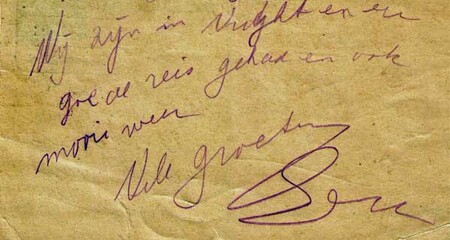 Wij zijn in Vught en en
goede reis gehad en ook
mooi weer
Vele groeten